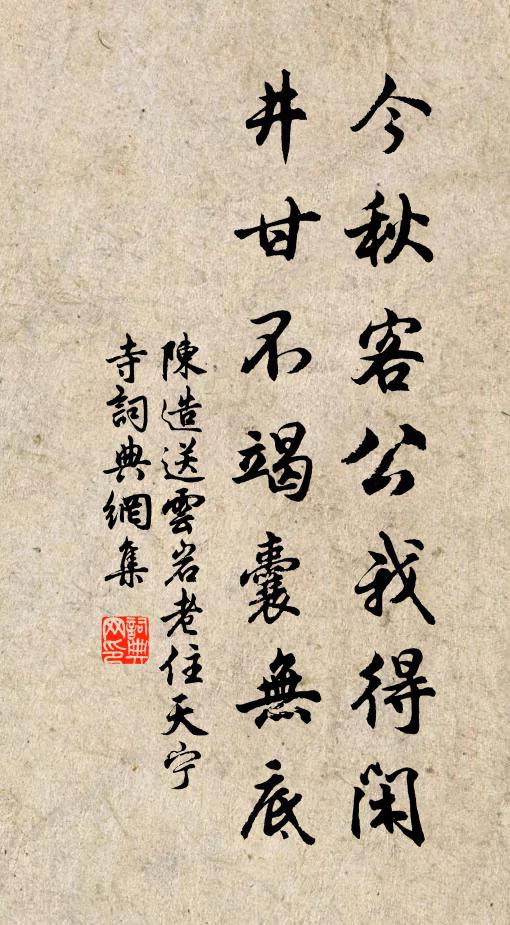 今秋客公我得閑
井甘不竭囊無底
陳造送雲岩老住天宁
寺詞典網集
詞典
网印